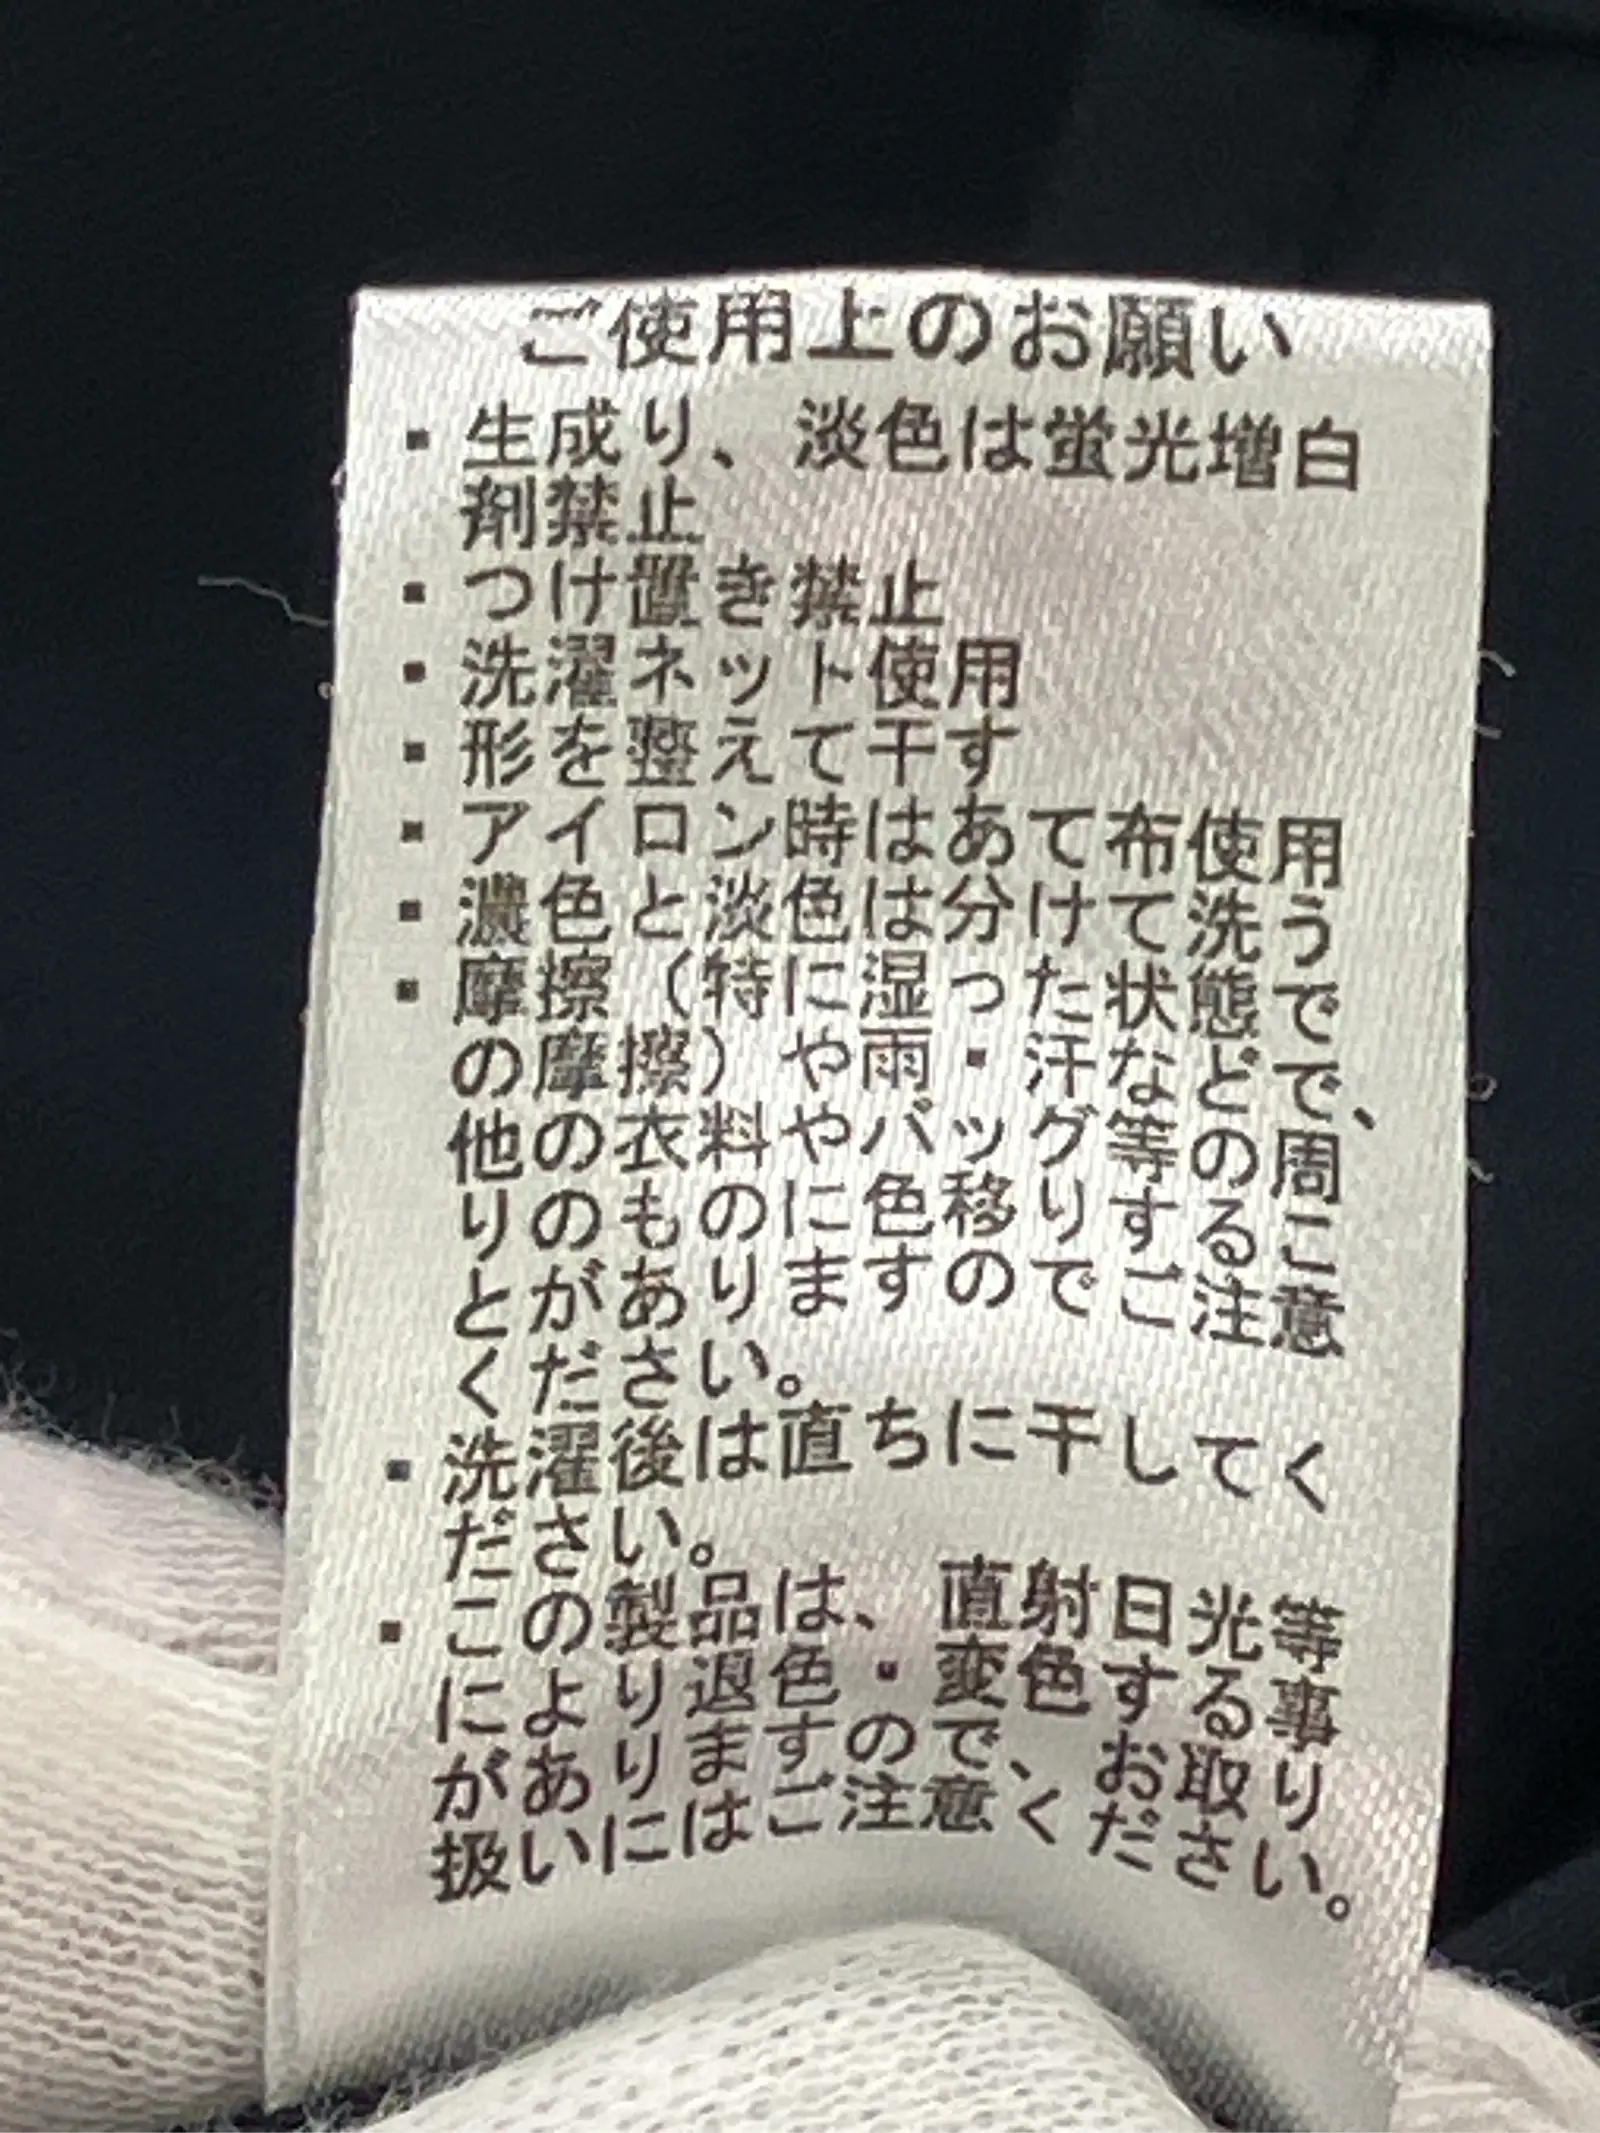 ご使用上のお願い
・生成り、淡色は蛍光増白
剤禁止
・つけ置き禁止
・洗濯ネット使用
・形を整えて干す
・アイロン時はあて布使用
・濃色と淡色は分けて洗う
・摩擦（特に湿った状態で
の摩擦）や雨・汗などで、
他の衣料やバッグ等の周
りのものに色移りするこ
とがありますのでご注意
ください。
・洗濯後は直ちに干してく
ださい。
・この製品は、直射日光等
により退色・変色する事
がありますので、お取り
扱いにはご注意ください。